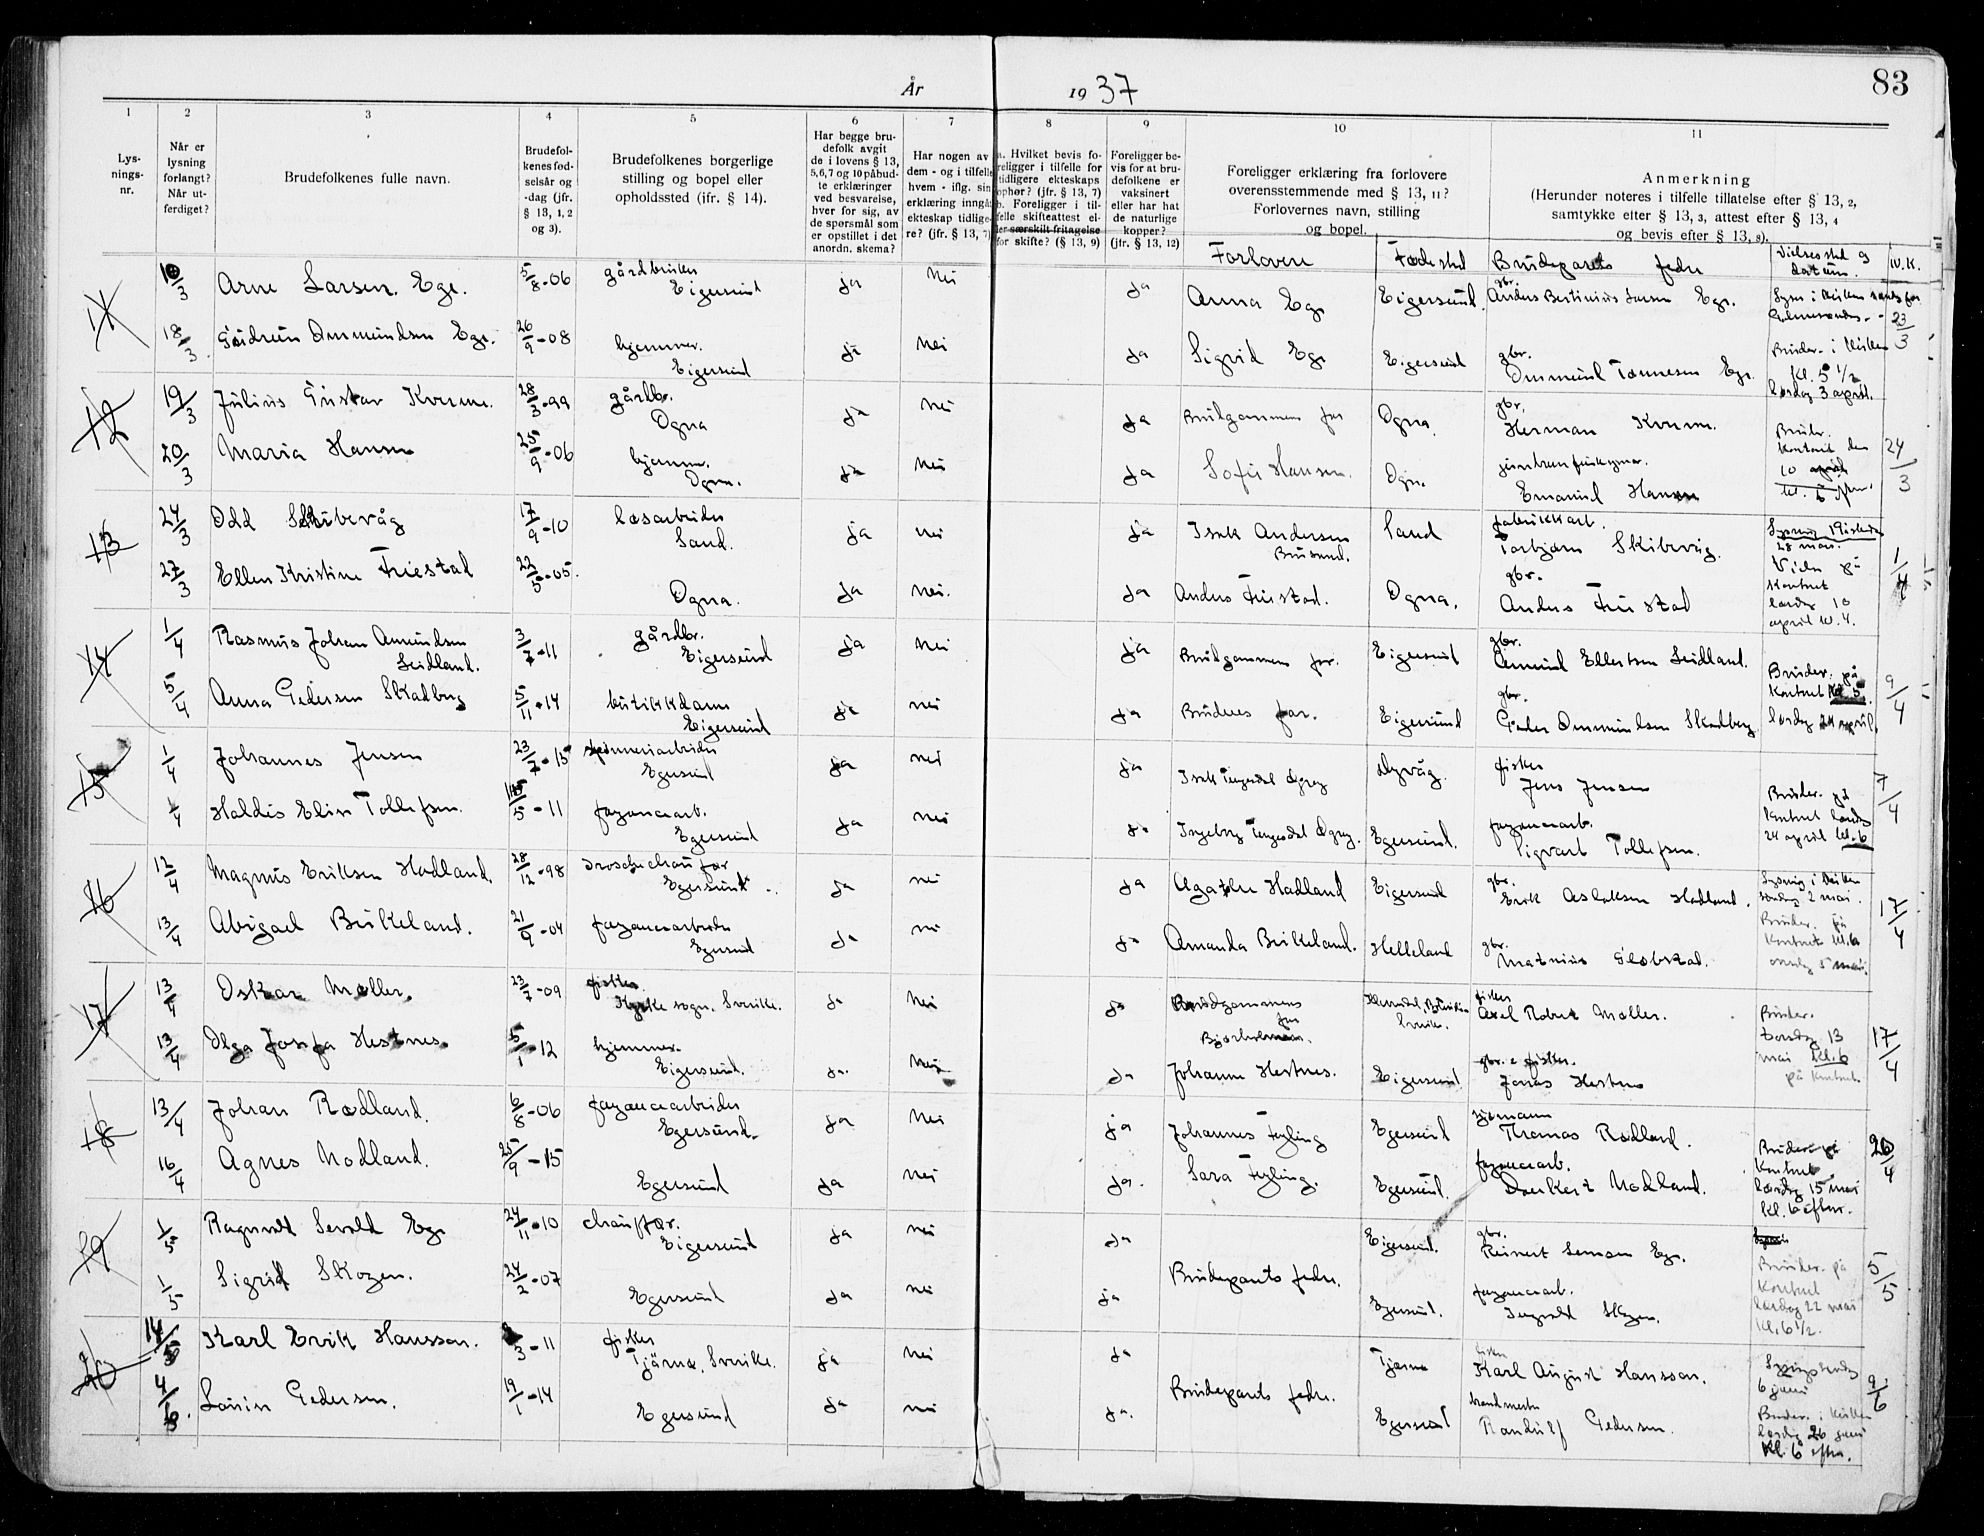 År 1937
83
1 2 3 4 5 6 7 8 9 10 11
Lys-
nings-
nr.
Når er
lysning
forlangt?
Når ut-
ferdiget?
Brudefolkenes fulle navn.
Brudefol-
kenes fød-
selsår og
-dag (jfr.
§ 13, 1, 2
og 3).
Brudefolkenes borgerlige
stilling og bopel eller
opholdssted (ifr. § 14).
Har begge bru-
defolk avgit
de i lovens § 13,
5,6,7 og 10 påbud-
te erklæringer
ved besvarelse,
hver for sig, av
de spørsmål som
er opstillet i det
anordn. skema?
Har nogen av
dem - og i tilfelle
hvem - iflg. sin
erklæring inngå
ekteskap tidlige-
re? (jfr. § 13, 7)
a. Hvilket bevis fo-
religger i tilfelle for
tidligere ekteskaps
ophør? (jfr. § 13, 7)
b. Foreligger i til-
felle skifteattest el-
ler særskilt fritagelse
for skifte? (§ 13, 9)
Foreligger be-
vis for at bru-
defolkene er
vaksinert
eller har hat
de naturlige
kopper?
(jfr. § 13, 12)
Foreligger erklæring fra forlovere
overensstemmende med § 13, 11?
Forlovernes navn, stilling
og bopel.
Anmerkning
(Herunder noteres i tilfelle tillatelse efter § 13, 2,
samtykke efter § 13, 3, attest efter § 13, 4
og bevis efter § 13, 8).
Forlovere Fødested Brudeparets fedre Vielsessted og datum.
11 10/3 Arne Larsen Ege. 5/8-06 gårdbruker Eigersund ja Nei ja Anna Ege Eigersund gbr. Anders Bertinius Larsen Ege.
18/3 Gudrun Ommundsen Ege. 26/9-08 hjemmev. Eigersund ja Nei ja Sigrid Ege Eigersund gbr. Ommund Tønnesen Ege. Bruder i kirken kl. 5 1/2 lørdag 3 april. 23/3
12 19/3 Julius Gustav Kverme. 28/3-99 gårdbr. Ogna ja Nei ja Brudgommens far Ogna. gbr. Herman Kverme.
20/3 Maria Hansen 25/9-06 hjemmev. Ogna. ja Nei ja Sofie Hansen. Ogna. Emanuel Hansen Bruder. kontoret den 10 april 24/3
13 24/3 Odd Skibevåg 17/9-10 løsarbeider Sand. ja nei ja Isak Andersen Brusand. Sand fabrikkarb. Torbjørn Skibevåg. Lysning 28 mars.
27/3 Ellen Kristine Friestad 22/5-05. Ogna. ja nei. ja Anders Friestad. Ogna. gbr. Anders Friestad Vieln på kontoret lørdag 10 april kl. 4. 1/4
14 1/4 Rasmus Johan Amundsen Leidland. 3/7-11 gårdbr. Eigersund ja Nei ja Brudgommens far. Eigersund gbr. Amund Ellertsen Leidland.
5/4 Anna Pedersen Skadberg 5/11-14 butikkdame Eigersund ja nei ja Brudens far. Eigersund gbr. Peder Ommundsen Skadberg Bruder. på kontoret kl 5 lørdag 24 april. 9/4
15 1/4 Johannes Jensen 23/7-15 spinneriarbeider Egersund ja nei ja Isak Tengesdal Dyvåg. fisker Jens Jensen
1/4 Haldis Elin Tollefsen. 5-11 fayancearb. Egersund ja nei ja Ingeborg Tengesdal Egersund. fayancearb. Sigvart Tollefsen. Bruder. på kontoret lørdag 24 april kl. 6 7/4
16 12/4 Magnus Eriksen Hadland. 28/12-98 Egersund ja nei ja Agathe Hadland Eigersund gbr. Erik Aslaksen Hadland. Lysning i kirken søndag 2 mai.
13/4 Abigael Birkeland. 21/9-04 fayancearbeider Egersund ja nei ja Amanda Birkeland. Helleland gbr. Mathias Bruder. på kontoret kl. 6 onsdag 5 mai. 17/4
17 13/4 Oskar Møller. 23/7-09 fisker. sogn, Sverike. ja Nei ja Brudgommens far Bjørholmen. fisker Axel Robert Møller.
13/4 Olga Josefa Hestnes. 5/1-12 hjemmev. Eigersund. ja. Nei ja Johanne Hestnes. Eigersund gbr. & fisker. Jonas Hestnes Bruder. torsdag 13 mai kl. 6 på kontoret 17/4
18 13/4 Johan Rødland. 6/8-06 fayancearbeider Egersund. ja Nei ja Johannes Tyling Egersund sjømann Thomas Rødland.
16/4 Agnes Modland. 25/9-15 Egersund ja nei ja. Sara Tyling. Egersund. fayancearb. Modland. Bruder på kontoret lørdag 15 mai kl. 6 efterm. 26/4
19 1/5 Ragnvald Sevald Ege 24/11-10 chauffør. Eigersund ja nei ja Brudeparets fedre. Eigersund. gbr. Reinert Ege.
1/5 Sigrid Skogen. 24/2-07 Egersund ja nei ja Egersund. fayancearb. Ingvald Skogen. Bruder. på kontoret lørdag 22 mai kl. 6 1/2. 5/5
20 14/5 Karl Erik Hansson. 3-11 fisker Tjärnø, Sverike. ja Nei ja Brudeparets fedre. Tjärnø fisker Karl August Hansson. 6 juni
4/6. Lovise Pedersen. 19/1-14 Egersund ja nei ja. Egersund brandmester Randulf Pedersen. Bruder. i kirken lørdag 26 juni kl. 6 efterm. 9/6